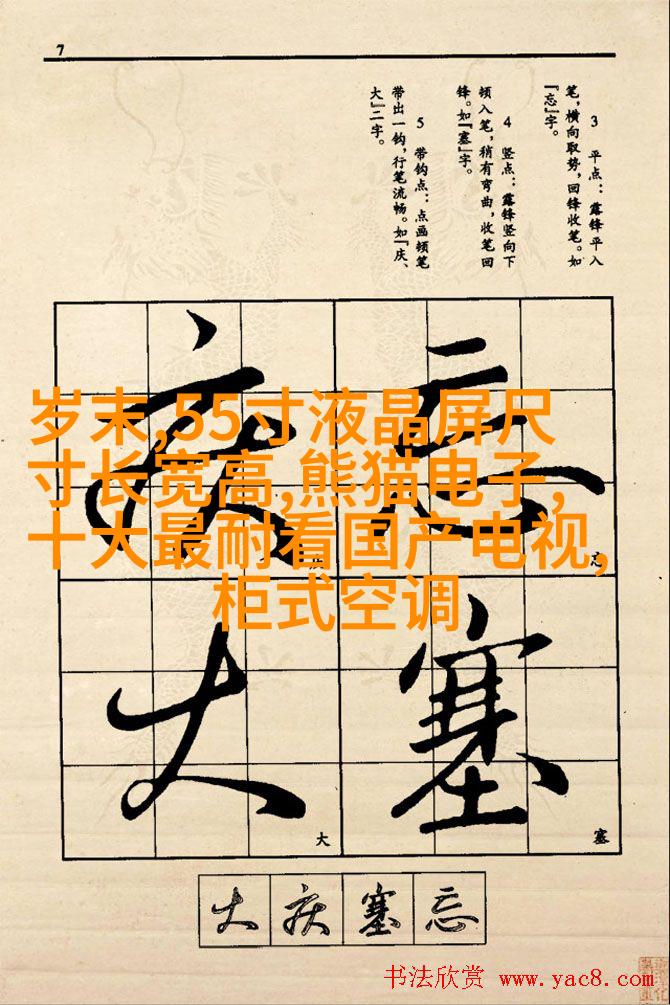 7
3 平点：露锋平入
笔，横向取势，回锋收笔。如
『忘』字。
4 竖点：露锋竖向下
顿入笔，稍有弯曲，收笔回
锋。如『塞』字。
5 带钩点：点画顿笔
带出一钩，行笔流畅。如『庆、
大』二字。
岁末,55寸液晶屏尺
寸长宽高,熊猫电子,
十大最耐看国产电视,
柜式空调
忘
庆
塞
塞
大
大
大 庆 塞 忘
书法欣赏 www.yac8.com